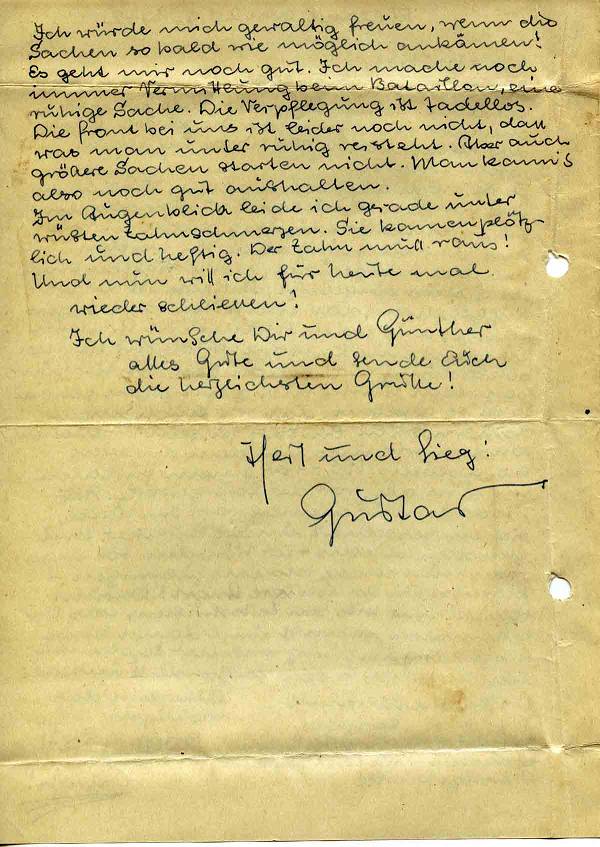 Ich würde mich gewaltig freuen, wenn die
Sachen so bald wie möglich ankämen!
Es geht mir noch gut. Ich mache noch
immer Vermittlung beim Bataillon, eine
ruhige Sache. Die Verpflegung ist tadellos.
Die Front bei uns ist leider noch nicht, daß
was man unter ruhig versteht. Aber auch
größere Sachen starten nicht. Man kann's
also noch gut aushalten.
Im Augenblick leide ich gerade unter
wüsten Zahnschmerzen. Sie kamen plötz
lich und heftig. Der Zahn muß raus!
Und nun will ich für heute mal
wieder schließen!
Ich wünsche Dir und Günther
alles Gute und sende Euch
die herzlichsten Grüße!
Heil und Sieg!
Gustav